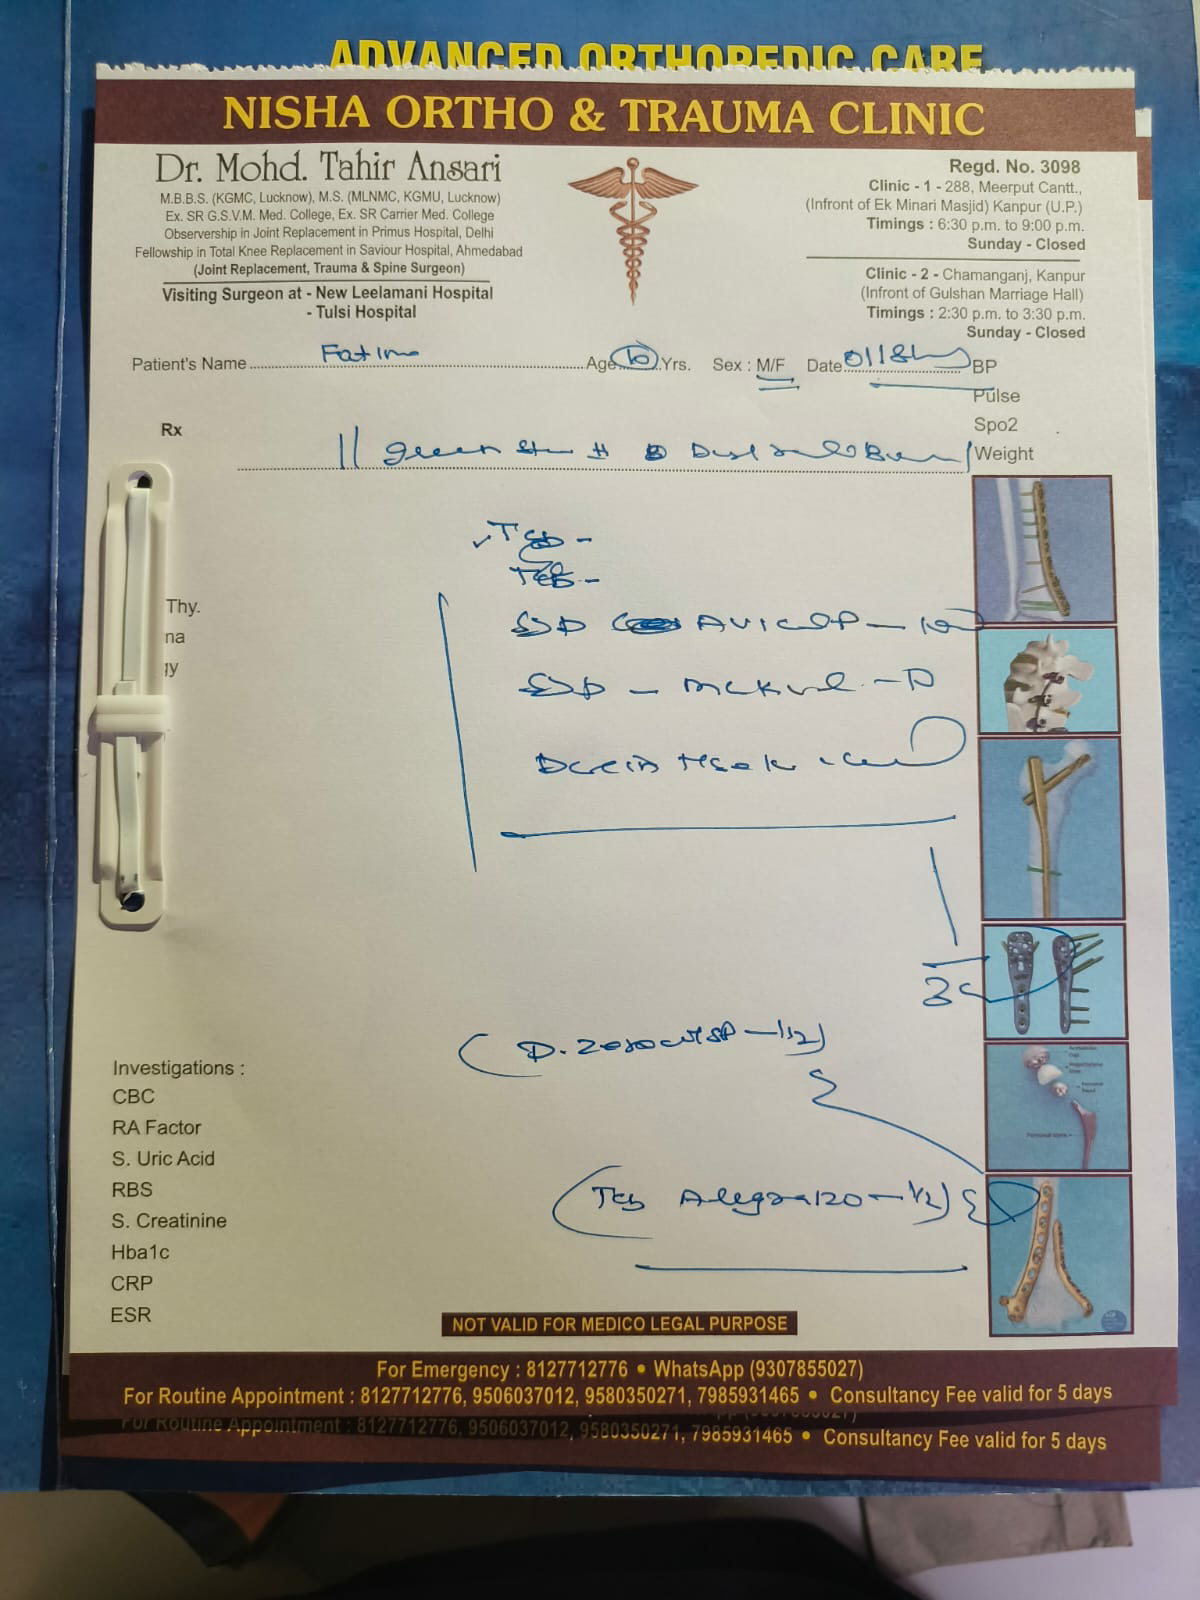 ADVANCED ORTHOPEDIC CARE
NISHA ORTHO & TRAUMA CLINIC
Dr. Mohd. Tahir Ansari
M.B.B.S. (KGMC, Lucknow), M.S. (MLNMC, KGMU, Lucknow)
Ex. SR G.S.V.M. Med. College, Ex. SR Carrier Med. College
Observership in Joint Replacement in Primus Hospital, Delhi
Fellowship in Total Knee Replacement in Saviour Hospital, Ahmedabad
(Joint Replacement, Trauma & Spine Surgeon)
Visiting Surgeon at - New Leelamani Hospital
- Tulsi Hospital
Regd. No. 3098
Clinic - 1 - 288, Meerput Cantt.,
(Infront of Ek Minari Masjid) Kanpur (U.P.)
Timings : 6:30 p.m. to 9:00 p.m.
Sunday - Closed
Clinic - 2 - Chamanganj, Kanpur
(Infront of Gulshan Marriage Hall)
Timings : 2:30 p.m. to 3:30 p.m.
Sunday - Closed
Patient's Name Fatima Age Yrs. Sex : M/F Date
BP
Pulse
Spo2
Weight
Rx
green #
Thy.
na
gy
Tab -
Tab -
(Tab Alegra 120 - 1/2)
Investigations :
CBC
RA Factor
S. Uric Acid
RBS
S. Creatinine
Hba1c
CRP
ESR
NOT VALID FOR MEDICO LEGAL PURPOSE
For Emergency : 8127712776 • WhatsApp (9307855027)
For Routine Appointment : 8127712776, 9506037012, 9580350271, 7985931465 • Consultancy Fee valid for 5 days
For Routine Appointment : 8127712776, 9506037012, 9580350271, 7985931465 • Consultancy Fee valid for 5 days